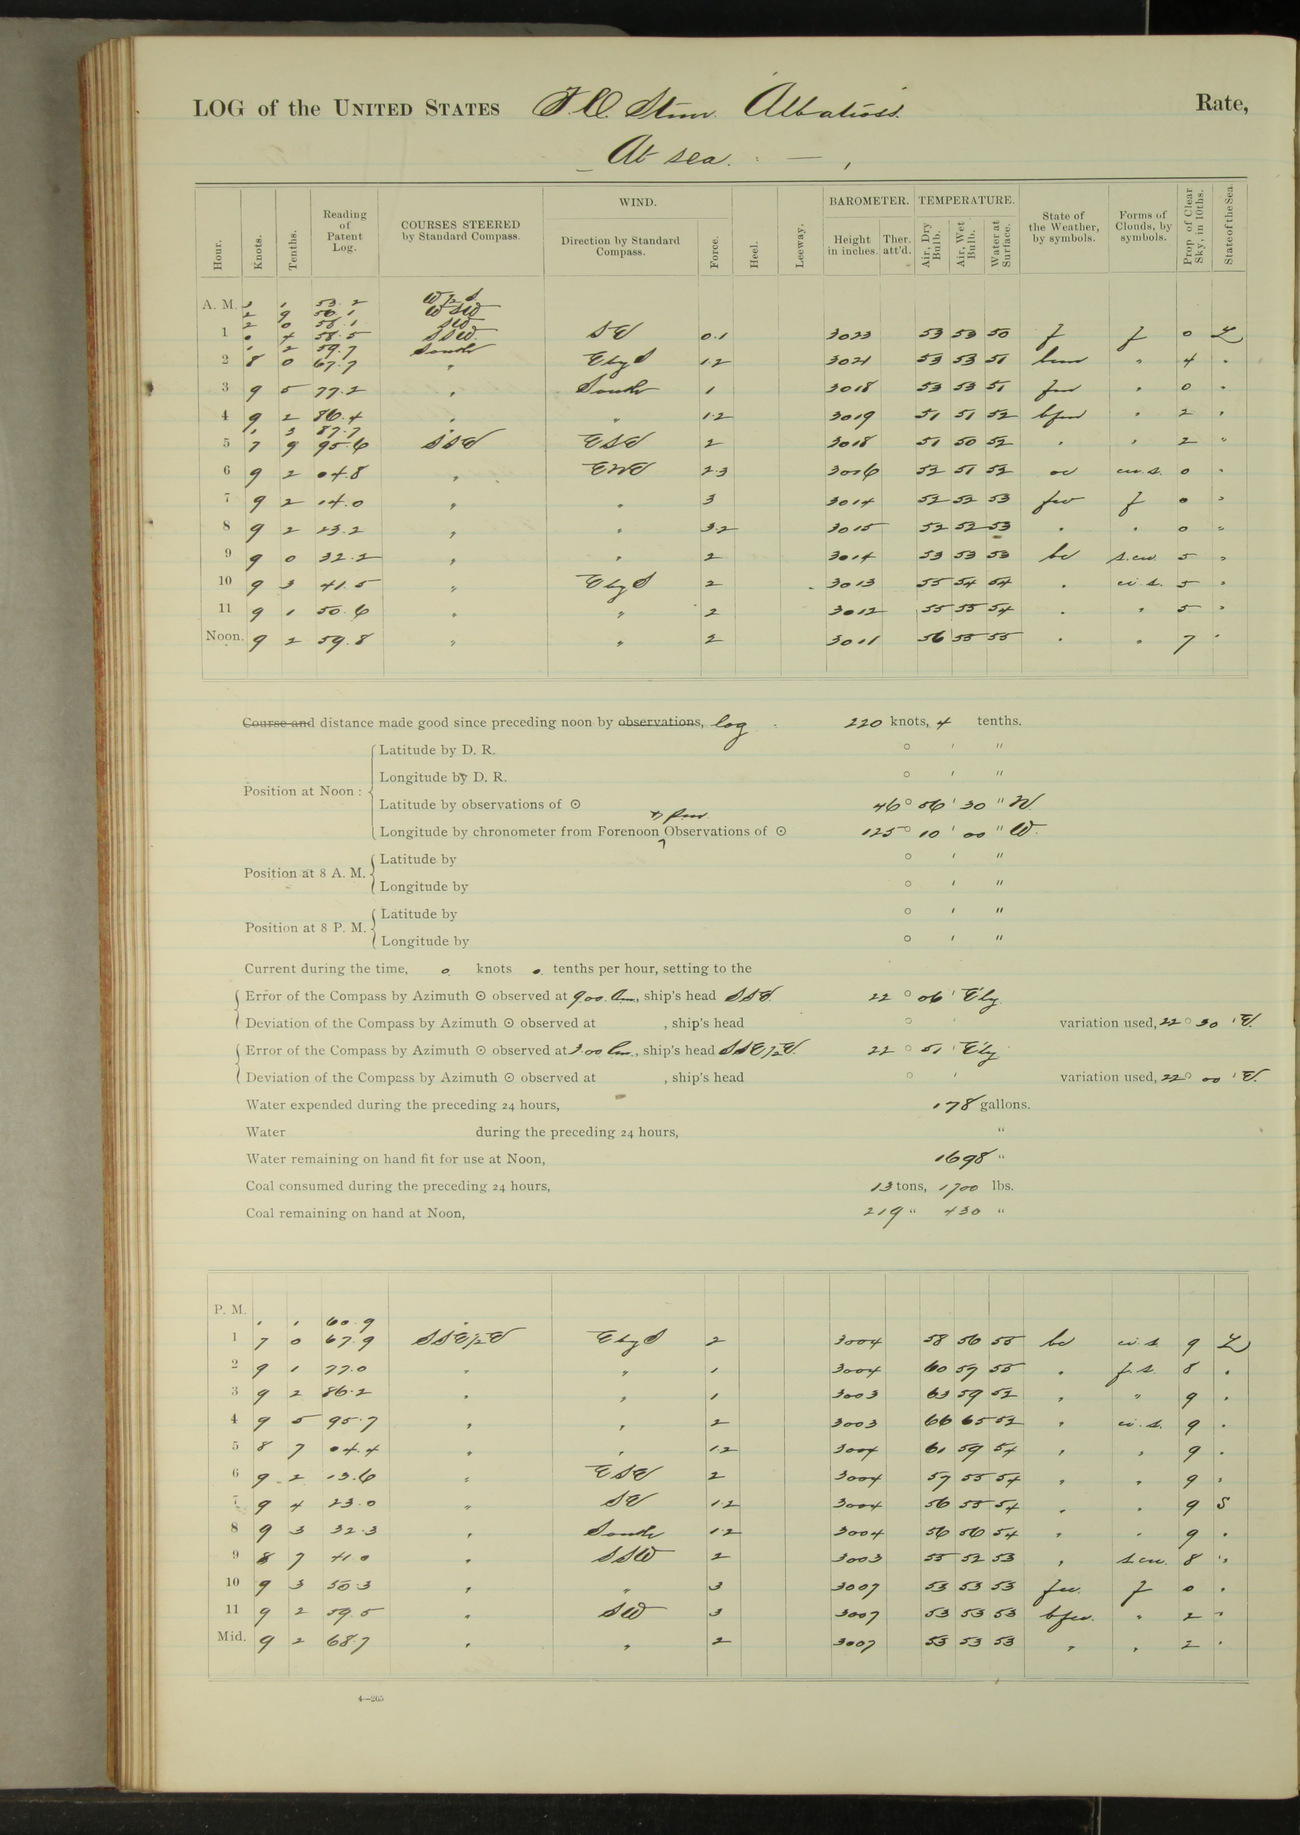 LOG of the UNITED STATES F.C. Stmr. Albatross. Rate,
At sea.
Hour. Knots. Tenths. Reading of Patent Log. COURSES STEERED by Standard Compass. WIND. Direction by Standard Compass. Force. Heel. Leeway. BAROMETER. Height in inches. Ther. att'd. TEMPERATURE. Air, Dry Bulb. Air, Wet Bulb. Water at Surface. State of the Weather, by symbols. Forms of Clouds, by symbols. Prop. of Clear Sky, in 10ths. State of the Sea.
A. M. 3 1 53.2 W½S
2 9 56.1 WSW
2 0 58.1 SW
1 0 4 58.5 SSW. SE 0.1 3023 53 53 50 f f 0 L
1 2 59.7 South
2 8 0 67.7 " E by S 1.2 3021 53 53 51 " 4 "
3 9 5 77.2 " South 1 3018 53 53 51 " 0 "
4 9 2 86.4 " " 1.2 3019 51 51 52 " 2 "
1 3 87.7
5 7 9 95.6 SSE ESE 2 3018 51 50 52 " " 2 "
6 9 2 04.8 " ENE 2.3 3016 52 51 52 oc cu.s. 0 "
7 9 2 14.0 " " 3 3014 52 52 53 f 0 "
8 9 2 23.2 " " 3.2 3015 52 52 53 " " 0 "
9 9 0 32.2 " " 2 3014 53 53 53 bc s.cu. 5 "
10 9 3 41.5 " E by S 2 3013 55 54 54 " ci.s. 5 "
11 9 1 50.6 " " 2 3012 55 55 54 " " 5 "
Noon. 9 2 59.8 " " 2 3011 56 55 55 " " 7 "
Course and distance made good since preceding noon by observations, log 220 knots, 4 tenths.
Position at Noon :
Latitude by D. R. ° ′ ″
Longitude by D. R. ° ′ ″
Latitude by observations of ⊙ 46° 56′ 30″ N.
Longitude by chronometer from Forenoon Observations of ⊙ 125° 10′ 00″ W.
Position at 8 A. M.
Latitude by ° ′ ″
Longitude by ° ′ ″
Position at 8 P. M.
Latitude by ° ′ ″
Longitude by ° ′ ″
Current during the time, 0 knots 0 tenths per hour, setting to the
Error of the Compass by Azimuth ⊙ observed at 9.00 a.m., ship's head SSE 22° 06′ E'ly.
Deviation of the Compass by Azimuth ⊙ observed at , ship's head ° ′ variation used, 22° 30′ E.
Error of the Compass by Azimuth ⊙ observed at 3.00 p.m., ship's head SSE½E. 22° 51′ E'ly
Deviation of the Compass by Azimuth ⊙ observed at , ship's head ° ′ variation used, 22° 00′ E.
Water expended during the preceding 24 hours, 178 gallons.
Water during the preceding 24 hours, "
Water remaining on hand fit for use at Noon, 1698 "
Coal consumed during the preceding 24 hours, 13 tons, 1700 lbs.
Coal remaining on hand at Noon, 219 " 430 "
P. M. 1 1 60.9 "
1 7 0 67.9 SSE½E E by S 2 3004 58 56 55 bc ci.s. 9 L
2 9 1 77.0 " " 1 3004 60 57 55 " 8 "
3 9 2 86.2 " " 1 3003 63 59 52 " " 9 "
4 9 5 95.7 " " 2 3003 66 65 52 " ci.s. 9 "
5 8 7 04.4 " " 1.2 3004 61 59 54 " " 9 "
6 9 2 13.6 " ESE 2 3004 57 55 54 " " 9 "
7 9 4 23.0 " SE 1.2 3004 56 55 54 " " 9 S
8 9 3 32.3 " South 1.2 3004 56 56 54 " " 9 "
9 8 7 41.0 " SSW 2 3003 55 52 53 " s.cu. 8 "
10 9 3 50.3 " " 3 3007 53 53 53 f 0 "
11 9 2 59.5 " SW 3 3007 53 53 53 " 2 "
Mid. 9 2 68.7 " " 2 3007 53 53 53 " " 2 "
4—265